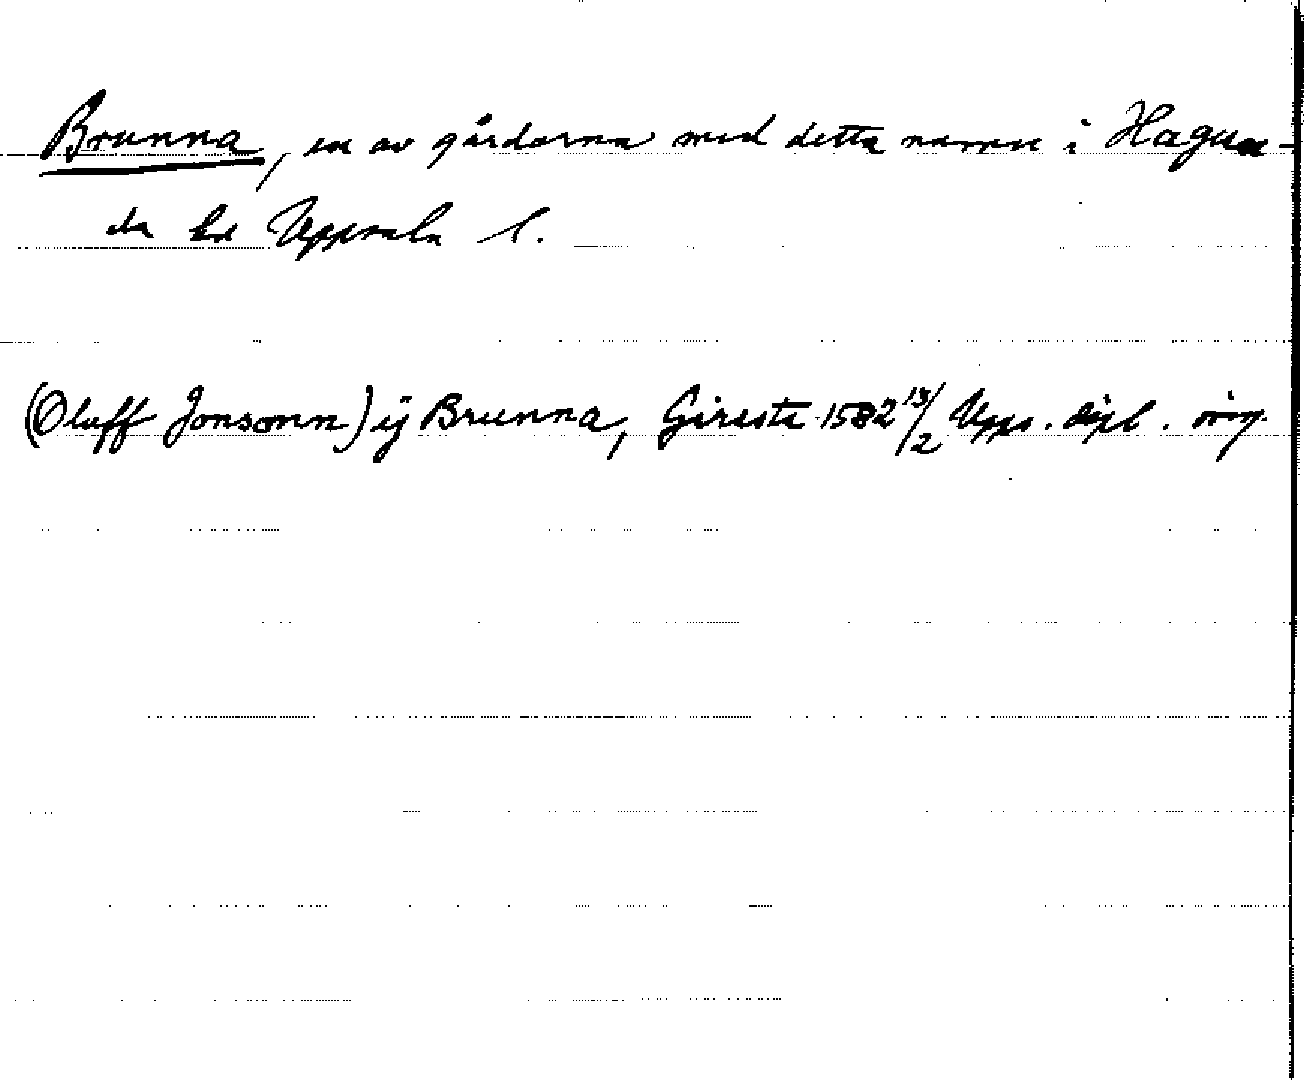 Brunna, en av gårdarna med detta namn i Hagun-
da hd Uppsala l.
(Oluff Jonsonn) ij Brunna, Giresta 1582 13/2 Upps. dipl. orig.